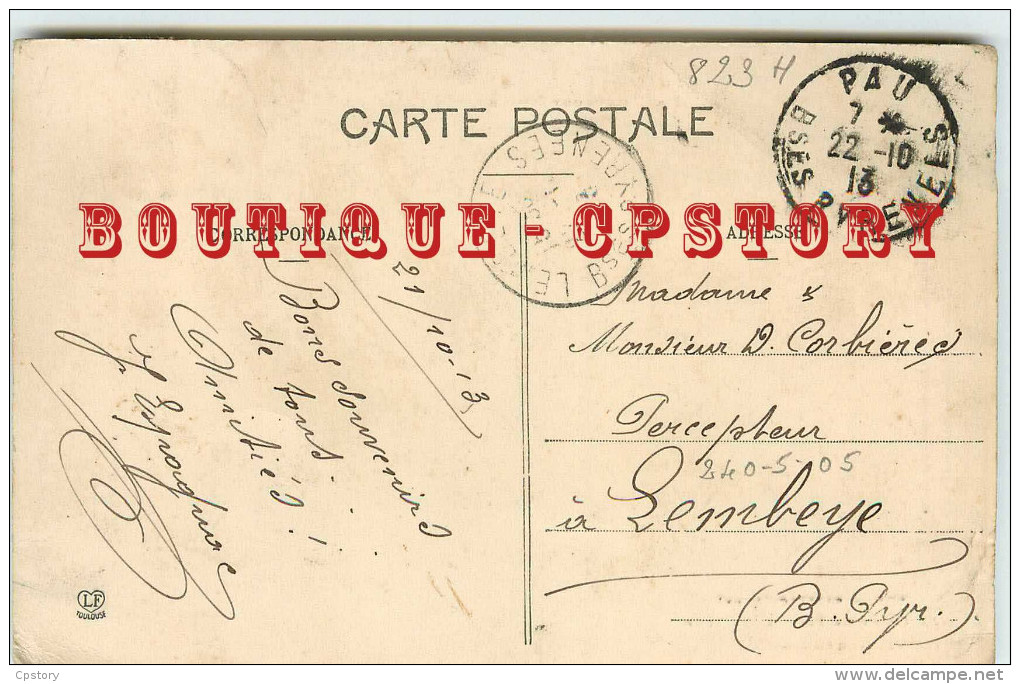 823 H
PAU
7 *
22 -10
13
BSES PYRENEES
CARTE POSTALE
BSSES PYRENEES
BOUTIQUE - CPSTORY
CORRESPONDANCE
ADRESSE
21/10-13
Bons Souvenirs
de tous..
Amitiés!
Madame &
Monsieur D. Corbières
Percepteur
240-5-05
à Lembeye
(B. Pyr.)
LF
TOULOUSE
Cpstory
delcampe.net